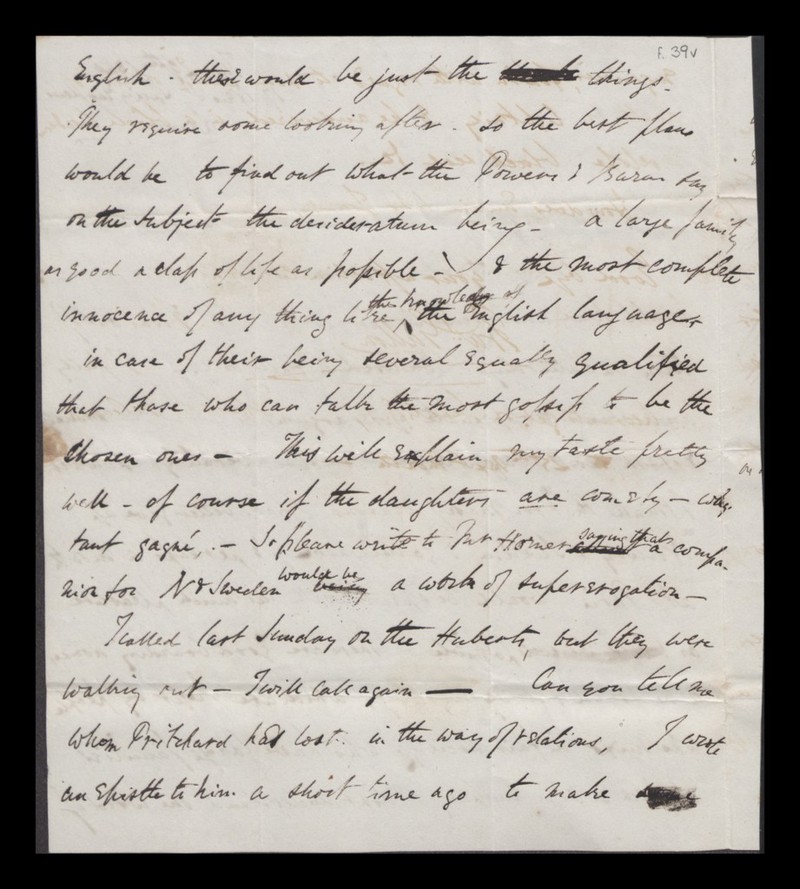 f. 39v
English - there would be just the things.
They require some looking after. so the best plan
would be to find out what the Powers & say
on the subject the desideratum being - a large family
as good a class of life as possible - & the most complete
innocence of any thing like the knowledge of the English language,
in case of their being several equally qualified
that those who can talk the most gossip to be the
chosen ones - This will explain my taste pretty
well - of course if the daughters are comely - why
tant gagné, - So please write to Mr Horner saying that a compa-
nion for N & Sweden would be being a work of supererogation -
I called last Sunday on the Huberts, but they were
walking out - I will call again - Can you tell me
whom Pritchard has lost. in the way of relations, I wrote
an Epistle to him a short time ago to make some